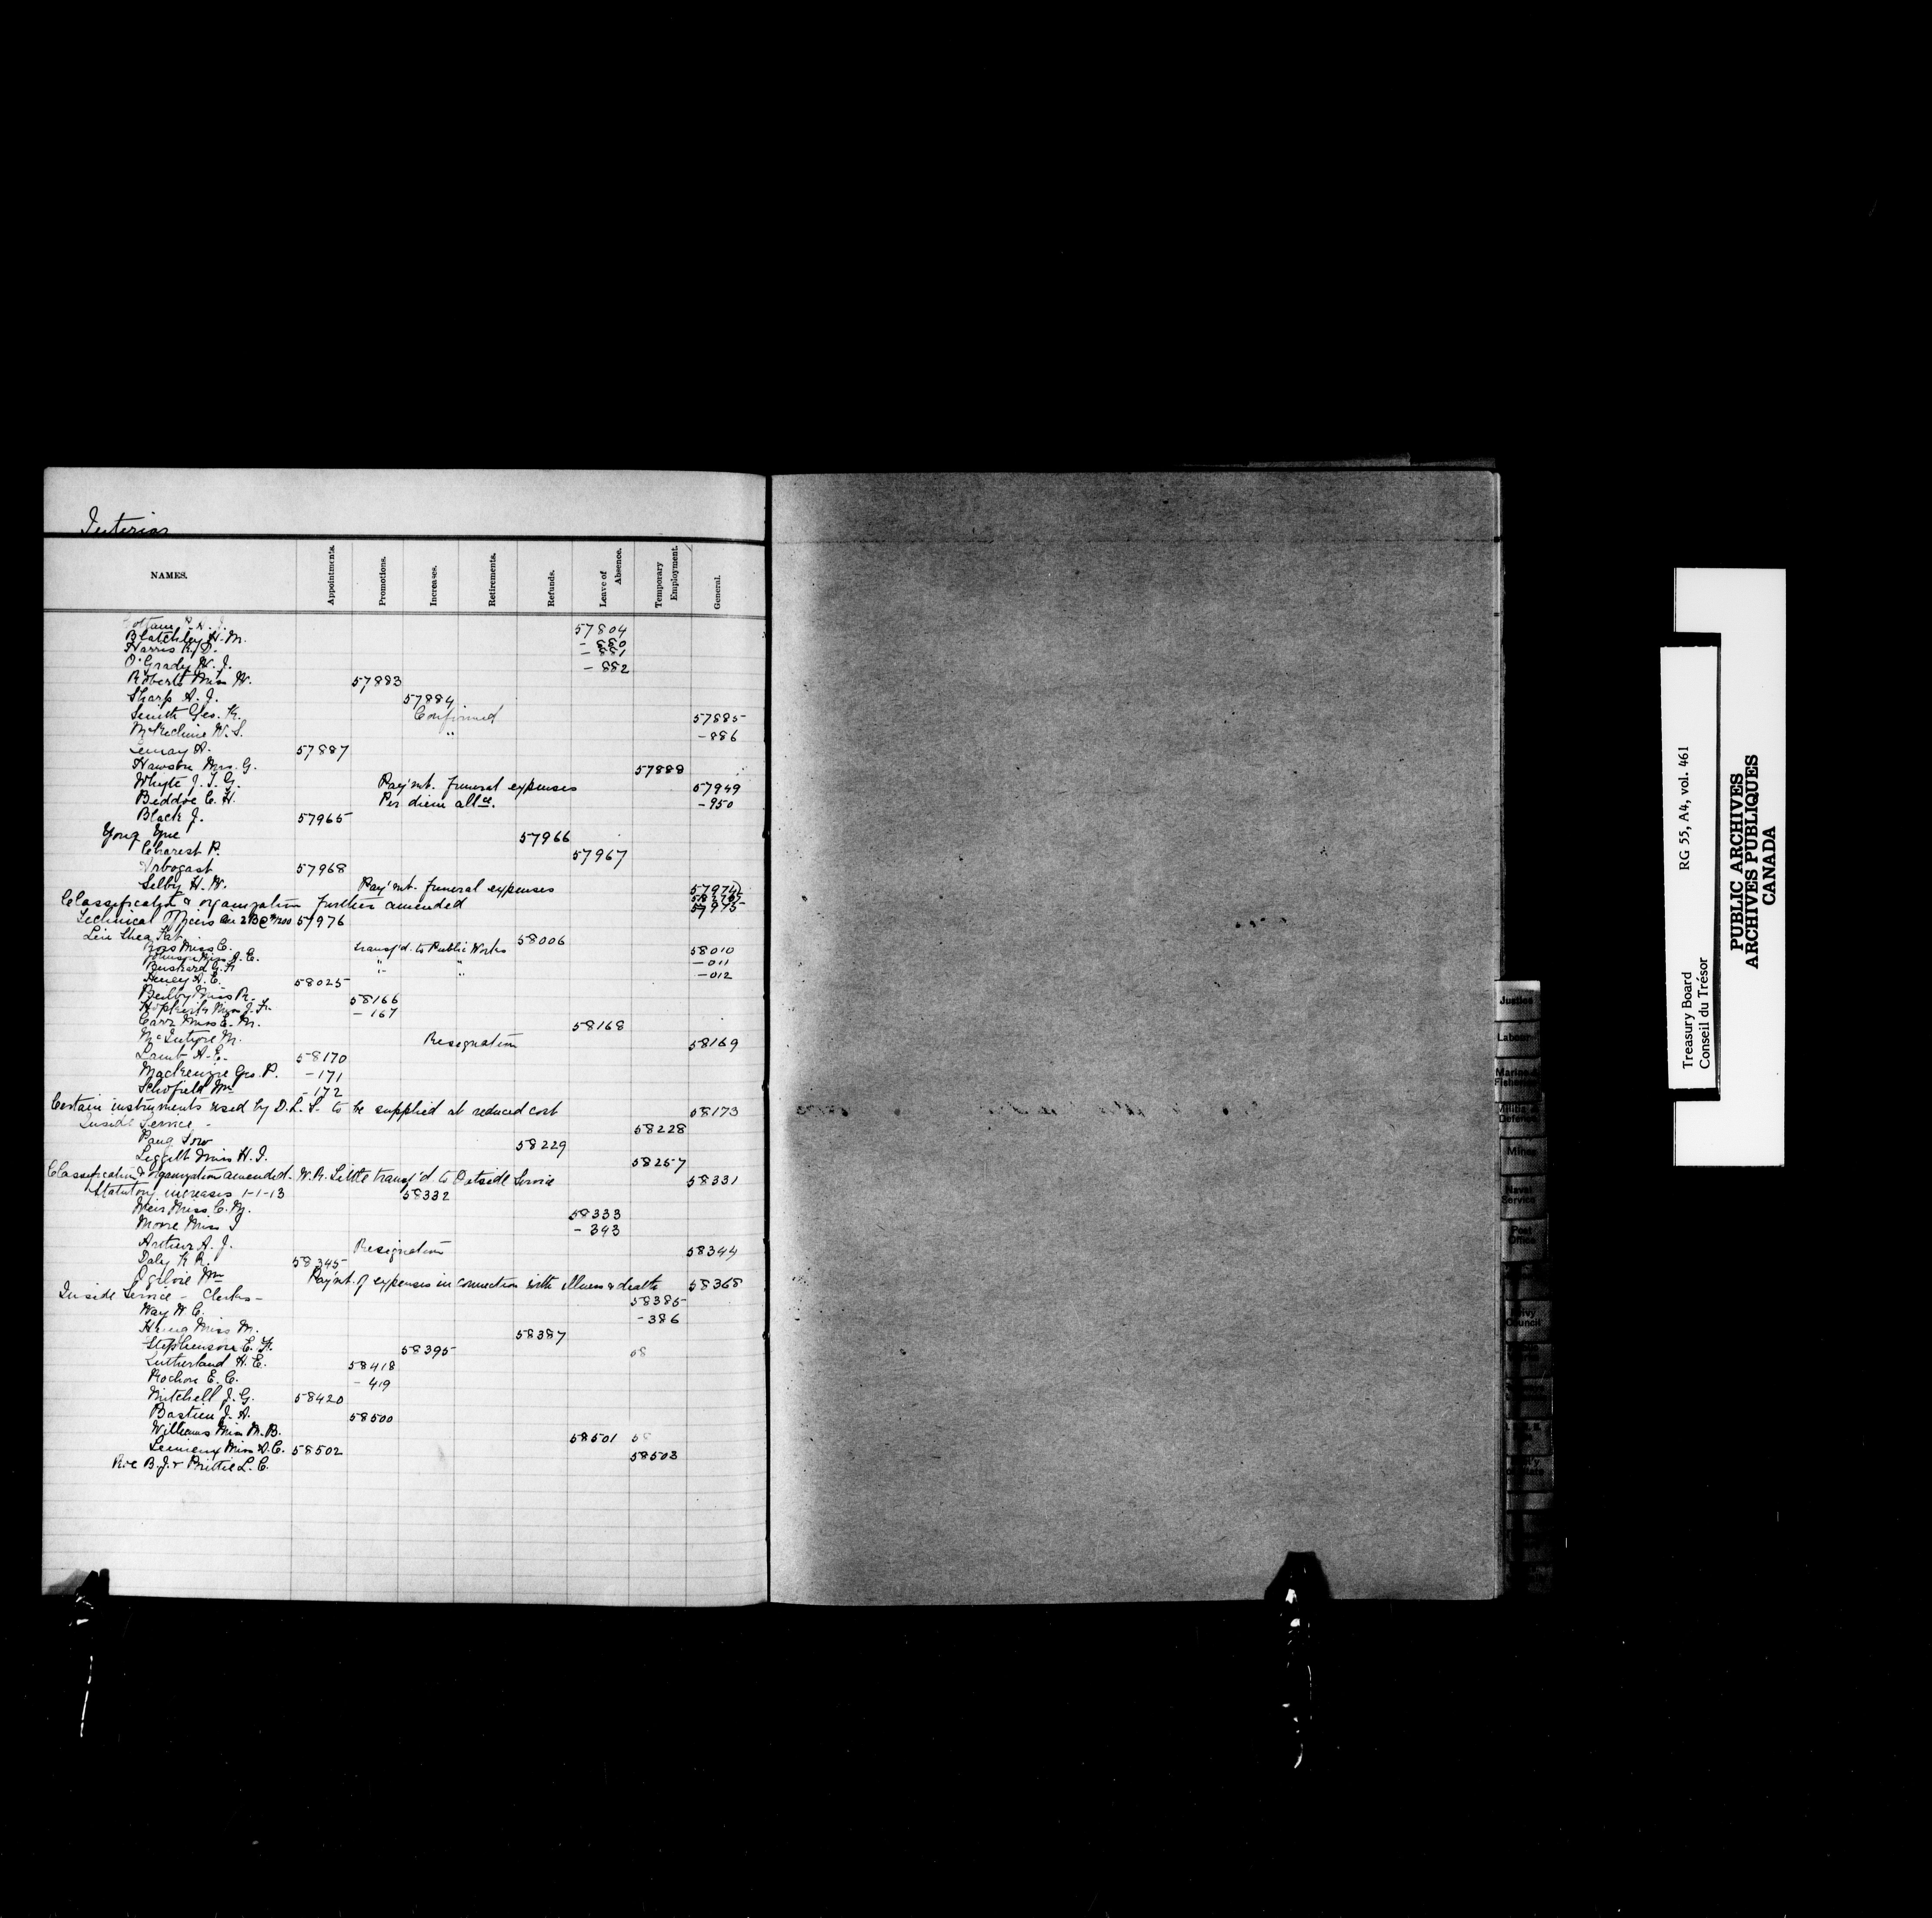 Interior
NAMES. Appointments. Promotions. Increases. Retirements. Refunds. Leave of Absence. Temporary Employment. General.
57804
Blatchley H. M. - 880
Harris R. D. - 881
O'Grady W. J. - 882
Roberts Miss W. 57883
Sharp A. J. 57884
Smith Geo. R. Confirmed 57885
W. S. " - 886
Lemay A. 57887
Hawson Mrs. G. 57888
Whyte J. T. G. Pay'mt. funeral expenses 57949
Beddoe C. H. Per diem allce. - 950
Black J. 57965
Yong Yue 57966
Charest P. 57967
Arbogast 57968
Selby H. W. Pay'mt. funeral expenses 57974
Classificatn & organization further amended 57975
Technical Officers in 2B @ 57976
Lein Shea Fat 58006
Ross Miss C. transf'd. to Public Works 58010
Johnson Miss A. E. " " - 011
Buskard G. F. " " - 012
Heney A. E. 58025
Miss R. 58166
Hopkirk Miss J. F. - 167
Carr Miss E. M. 58168
McIntyre M. Resignation 58169
Lamb A. E. 58170
Mackenzie Geo. P. - 171
Schofield Wm - 172
Certain instruments used by D. L. S. to be supplied at reduced cost 58173
Inside Service - 58228
Pang Sow 58229
Leggett Miss H. I. 58257
Classification & organization amended. W. R. Little transf'd to Outside Service 58331
Statutory increases 1-1-13 58332
Weir Miss C. M. 58333
Moore Miss I - 343
Arthur A. J. Resignation 58344
Daly K R. 58345
Ogilvie Wm Pay'mt. of expenses in connection with illness & death 58368
Inside Service - Clerks - 58385
Way W C. - 386
Miss M. 58387
Stephenson E. F. 58395 58
Sutherland H. E. 58418
Rochon E. C. - 419
Mitchell J. G. 58420
Bastien J. A. 58500
Williams Miss M. B. 58501 58
Lemieux Miss A. C. 58502
Roe B. J. & Prittie L. C. 58503
Justice
Labour
Marine & Fisheries
Militia & Defence
Mines
Naval Service
Post Office
Privy Council
Treasury Board RG 55, A4, vol. 461
Conseil du Trésor
PUBLIC ARCHIVES
ARCHIVES PUBLIQUES
CANADA